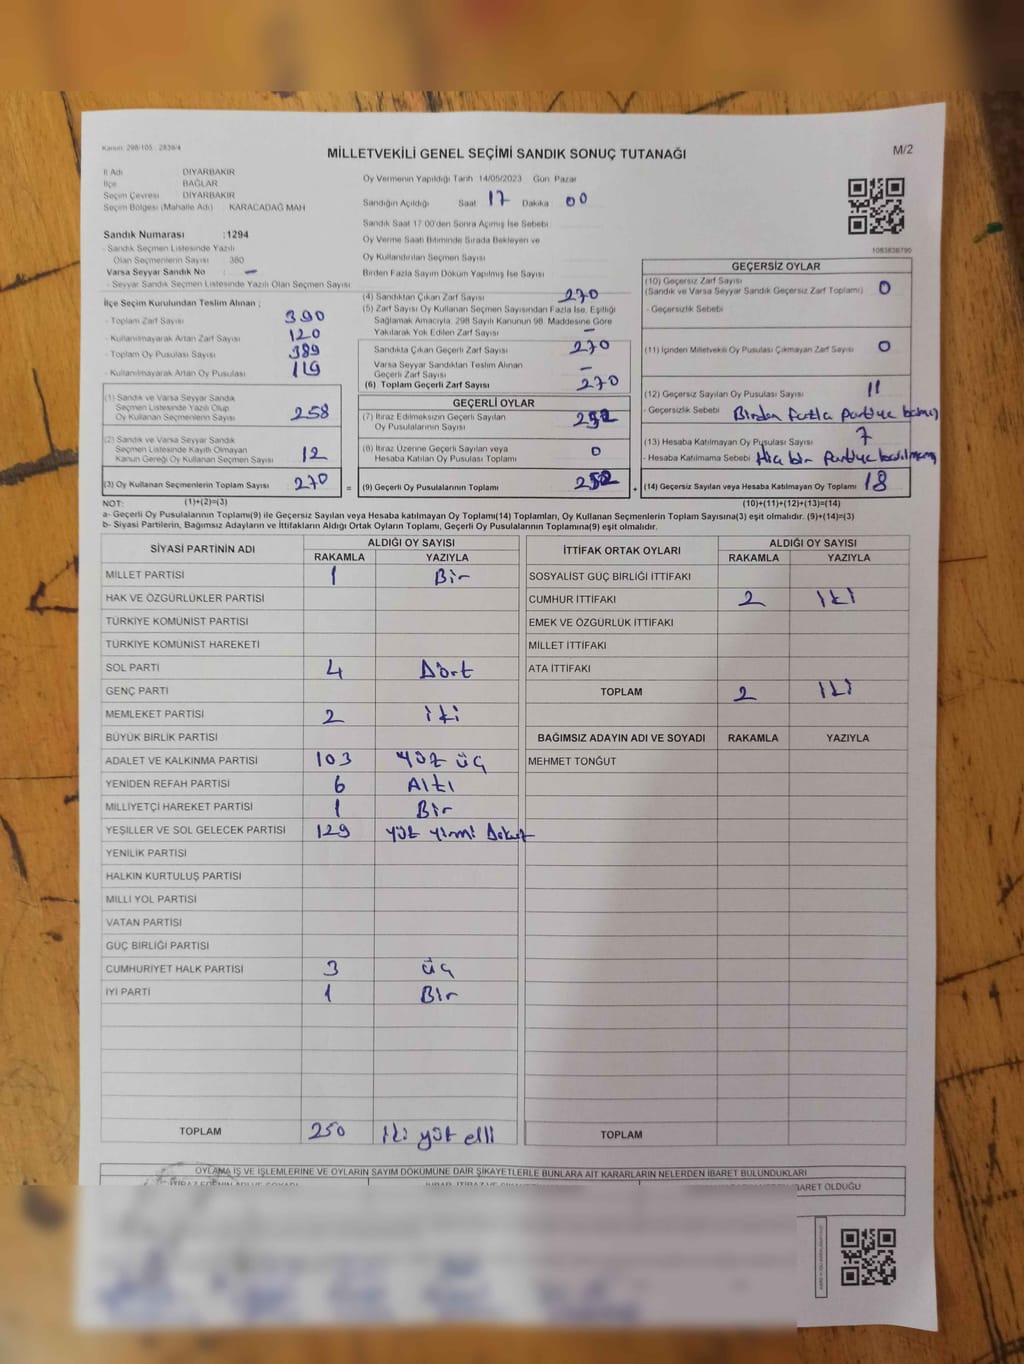 Kanun: 298/105 : 2839/4
MİLLETVEKİLİ GENEL SEÇİMİ SANDIK SONUÇ TUTANAĞI
M/2
İl Adı DİYARBAKIR
İlçe BAĞLAR
Seçim Çevresi DİYARBAKIR
Seçim Bölgesi (Mahalle Adı) : KARACADAĞ MAH
Sandık Numarası : 1294
- Sandık Seçmen Listesinde Yazılı
Olan Seçmenlerin Sayısı 380
Varsa Seyyar Sandık No : -
- Seyyar Sandık Seçmen Listesinde Yazılı Olan Seçmen Sayısı
Oy Vermenin Yapıldığı Tarih 14/05/2023 Gün Pazar
Sandığın Açıldığı Saat 17 Dakika 00
Sandık Saat 17:00'den Sonra Açılmış İse Sebebi
Oy Verme Saati Bitiminde Sırada Bekleyen ve
Oy Kullandırılan Seçmen Sayısı
Birden Fazla Sayım Döküm Yapılmış İse Sayısı
1083838790
İlçe Seçim Kurulundan Teslim Alınan ;
- Toplam Zarf Sayısı 390
- Kullanılmayarak Artan Zarf Sayısı 120
- Toplam Oy Pusulası Sayısı 389
- Kullanılmayarak Artan Oy Pusulası 119
(1) Sandık ve Varsa Seyyar Sandık
Seçmen Listesinde Yazılı Olup
Oy Kullanan Seçmenlerin Sayısı 258
(2) Sandık ve Varsa Seyyar Sandık
Seçmen Listesinde Kayıtlı Olmayan
Kanun Gereği Oy Kullanan Seçmen Sayısı 12
(3) Oy Kullanan Seçmenlerin Toplam Sayısı 270
(4) Sandıktan Çıkan Zarf Sayısı 270
(5) Zarf Sayısı Oy Kullanan Seçmen Sayısından Fazla İse, Eşitliği
Sağlamak Amacıyla, 298 Sayılı Kanunun 98. Maddesine Göre
Yakılarak Yok Edilen Zarf Sayısı -
Sandıkta Çıkan Geçerli Zarf Sayısı 270
Varsa Seyyar Sandıktan Teslim Alınan
Geçerli Zarf Sayısı -
(6) Toplam Geçerli Zarf Sayısı 270
GEÇERLİ OYLAR
(7) İtiraz Edilmeksizin Geçerli Sayılan
Oy Pusulalarının Sayısı 252
(8) İtiraz Üzerine Geçerli Sayılan veya
Hesaba Katılan Oy Pusulası Toplamı 0
= (9) Geçerli Oy Pusulalarının Toplamı 252 +
GEÇERSİZ OYLAR
(10) Geçersiz Zarf Sayısı
(Sandık ve Varsa Seyyar Sandık Geçersiz Zarf Toplamı) 0
- Geçersizlik Sebebi
(11) İçinden Milletvekili Oy Pusulası Çıkmayan Zarf Sayısı 0
(12) Geçersiz Sayılan Oy Pusulası Sayısı 11
- Geçersizlik Sebebi Birden fazla partiye
(13) Hesaba Katılmayan Oy Pusulası Sayısı 7
- Hesaba Katılmama Sebebi Hiç bir partiye
(14) Geçersiz Sayılan veya Hesaba Katılmayan Oy Toplamı 18
NOT: (1)+(2)=(3) (10)+(11)+(12)+(13)=(14)
a- Geçerli Oy Pusulalarının Toplamı(9) ile Geçersiz Sayılan veya Hesaba katılmayan Oy Toplamı(14) Toplamları, Oy Kullanan Seçmenlerin Toplam Sayısına(3) eşit olmalıdır. (9)+(14)=(3)
b- Siyasi Partilerin, Bağımsız Adayların ve İttifakların Aldığı Ortak Oyların Toplamı, Geçerli Oy Pusulalarının Toplamına(9) eşit olmalıdır.
SİYASİ PARTİNİN ADI ALDIĞI OY SAYISI
RAKAMLA YAZIYLA
MİLLET PARTİSİ 1 Bir
HAK VE ÖZGÜRLÜKLER PARTİSİ
TÜRKİYE KOMÜNİST PARTİSİ
TÜRKİYE KOMÜNİST HAREKETİ
SOL PARTİ 4 Dört
GENÇ PARTİ
MEMLEKET PARTİSİ 2 iki
BÜYÜK BİRLİK PARTİSİ
ADALET VE KALKINMA PARTİSİ 103 Yüz üç
YENİDEN REFAH PARTİSİ 6 Altı
MİLLİYETÇİ HAREKET PARTİSİ 1 Bir
YEŞİLLER VE SOL GELECEK PARTİSİ 129 yüz yirmi Dokuz
YENİLİK PARTİSİ
HALKIN KURTULUŞ PARTİSİ
MİLLİ YOL PARTİSİ
VATAN PARTİSİ
GÜÇ BİRLİĞİ PARTİSİ
CUMHURİYET HALK PARTİSİ 3 üç
İYİ PARTİ 1 Bir
TOPLAM 250 iki yüz elli
İTTİFAK ORTAK OYLARI ALDIĞI OY SAYISI
RAKAMLA YAZIYLA
SOSYALİST GÜÇ BİRLİĞİ İTTİFAKI
CUMHUR İTTİFAKI 2 iki
EMEK VE ÖZGÜRLÜK İTTİFAKI
MİLLET İTTİFAKI
ATA İTTİFAKI
TOPLAM 2 iki
BAĞIMSIZ ADAYIN ADI VE SOYADI RAKAMLA YAZIYLA
MEHMET TONĞUT
TOPLAM
OYLAMA İŞ VE İŞLEMLERİNE VE OYLARIN SAYIM DÖKÜMÜNE DAİR ŞİKAYETLERLE BUNLARA AİT KARARLARIN NELERDEN İBARET BULUNDUKLARI
İBARET OLDUĞU